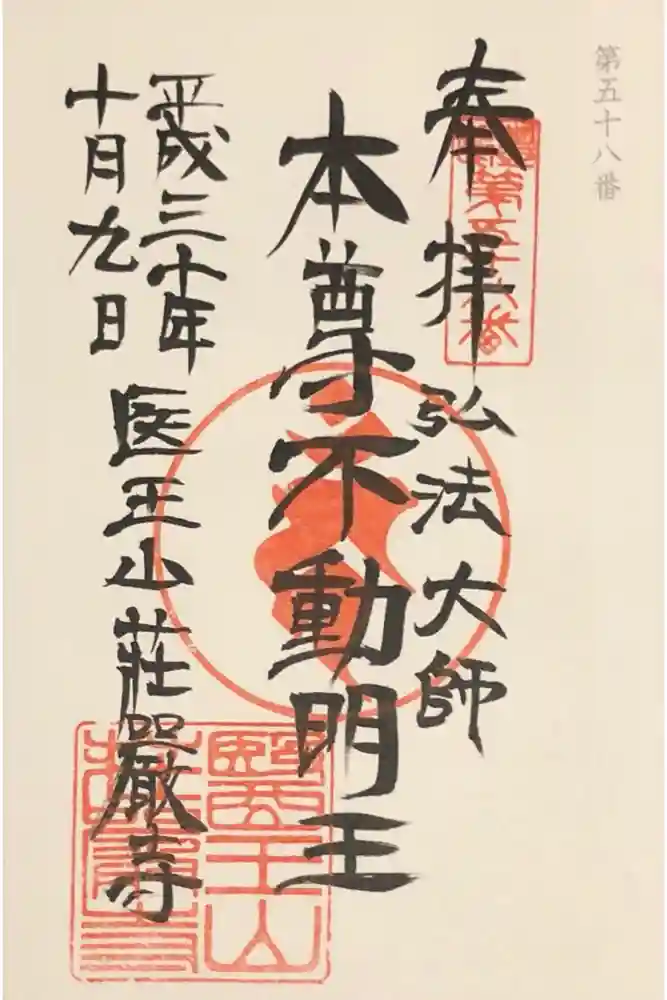 第五十八番
奉拝 弘法大師
本尊不動明王
平成三十年
十月九日
医王山荘厳寺
第五十八番
醫王山